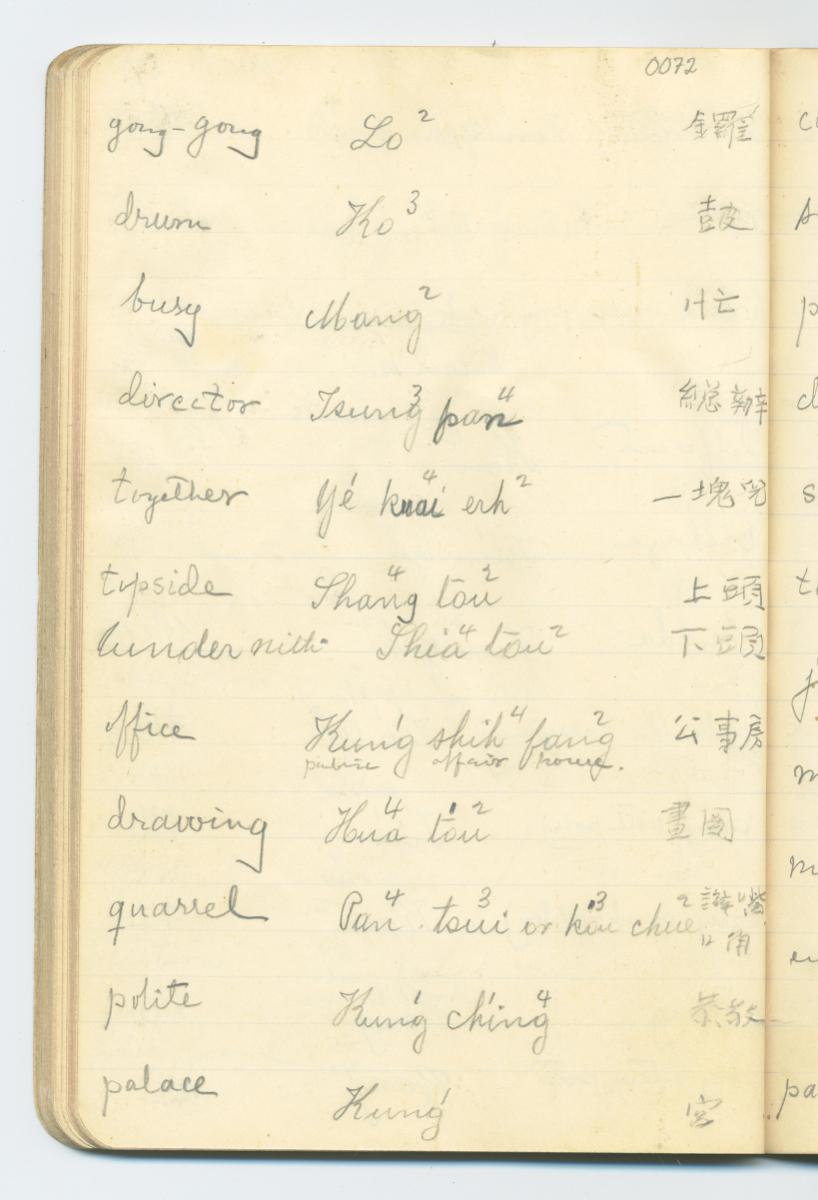 0072
gong-gong Lo² 鑼
drum Ko³ 鼓
busy Mang² 忙
director Tsung³ pan⁴ 総辦
together Yé kuai⁴ erh² 一塊兒
topside Shang⁴ tou² 上頭
underneith Shia⁴ tou² 下頭
office Kung shih⁴ fang² 公事房
public affair house.
drawing Hua⁴ tou² 畫圖
quarrel Pan⁴ tsui³ or kou³ chue² 辯嘴
口角
polite Kung ching⁴ 恭敬
palace Kung 宮